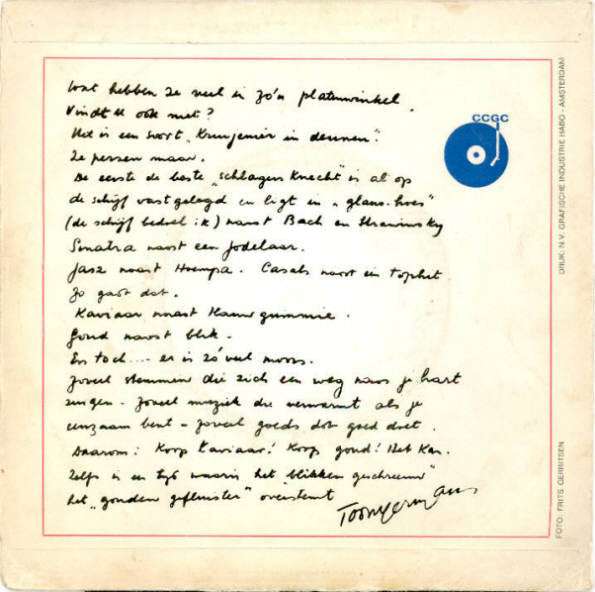 Wat hebben ze veel in zo'n platenwinkel.
Vindt U ook niet?
Het is een soort „Kruijenier in deunen".
Ze persen maar.
De eerste de beste „schlager knecht" is al op
de schijf vastgelegd en ligt in „glans-hoes"
(de schijf bedoel ik) naast Bach en Strawinsky
Sinatra naast een Jodelaar.
Jazz naast Hoempa. Casals naast een tophit.
Zo gaat dat.
Kaviaar naast Kauwgummie.
Goud naast blik.
En toch.... er is zó veel moois.
Zoveel stemmen die zich een weg naar je hart
zingen - Zoveel muziek die verwarmt als je
eenzaam bent - zoveel goeds dat goed doet.
Daarom: Koop Kaviaar! Koop goud! Het kan.
Zelfs in een tijd waarin het „blikken geschreeuw"
het „gouden gefluister" overstemt
Toon Hermans
CCGC
DRUK: N.V. GRAFISCHE INDUSTRIE HABO - AMSTERDAM
FOTO: FRITS GERRITSEN